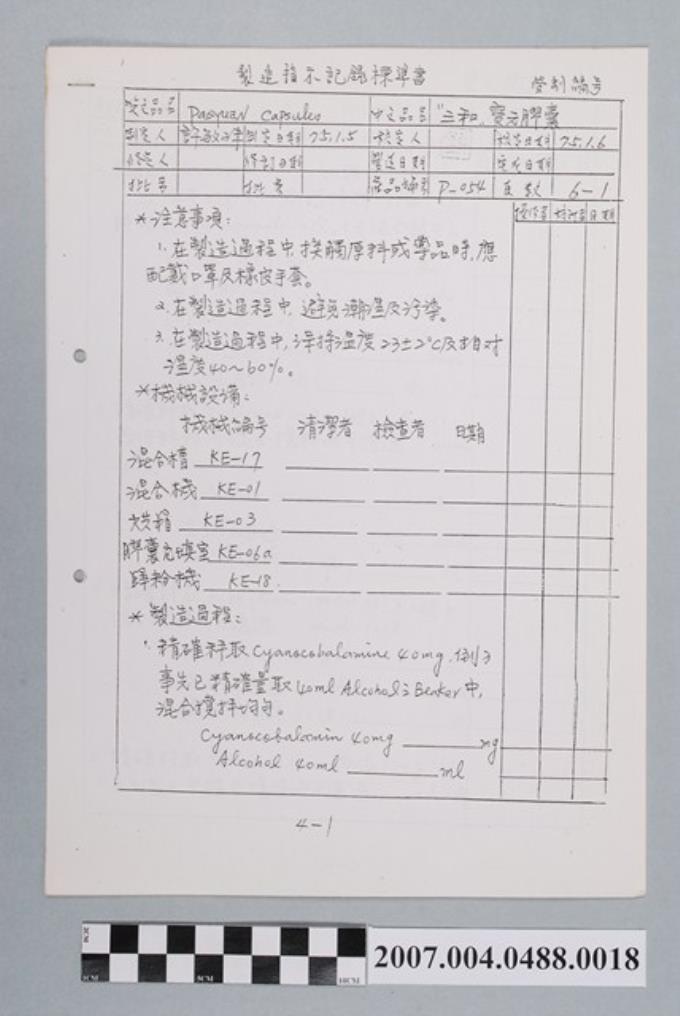 製造指示記錄標準書
管制編号
英文品名 Paoyuan Capsules 中文品名 "三和"寶元膠囊
制定人 制定日期 75.1.5 核定人 核定日期 75.1.6
修定人 修訂日期 製造日期 完成日期
批号 批量 產品編号 P-054 頁数 6-1
操作者 日期
*注意事項:
1. 在製造過程中,接觸原料或藥品時,應
配戴口罩及橡皮手套。
2. 在製造過程中,避免潮溼及汚染。
3. 在製造過程中,保持溫度23±2°C及相对
溼度40~60%。
*機械設備:
機械編号 清潔者 檢查者 日期
混合槽 KE-17
混合機 KE-01
烘箱 KE-03
膠囊充填室 KE-06a
篩粉機 KE-18
*製造過程:
精確秤取Cyanocobalamine 40mg,倒予
事先已精確量取40ml Alcohol之Beaker中,
混合攪拌均匀。
Cyanocobalamin 40mg mg
Alcohol 40ml ml
4-1
3CM
1CM 5CM 10CM
2007.004.0488.0018